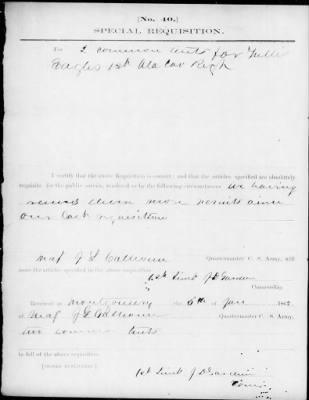 [No. 40.]
SPECIAL REQUISITION.
For 2 common tents for
Eagles 1st Ala Cav Regt
I certify that the above Requisition is correct; and that the articles specified are absolutely
requisite for the public service, rendered so by the following circumstances: we having
received eleven more recruits since
our last requisition
Maj J L Calhoun Quartermaster C. S. Army, will
issue the articles specified in the above requisition.
1st Lieut J D
Commanding.
Received at Montgomery the 6th of Jan 186
of Maj J L Calhoun Quartermaster C. S. Army,
common tents
in full of the above requisition.
(SIGNED DUPLICATES.)
1st Lieut J D